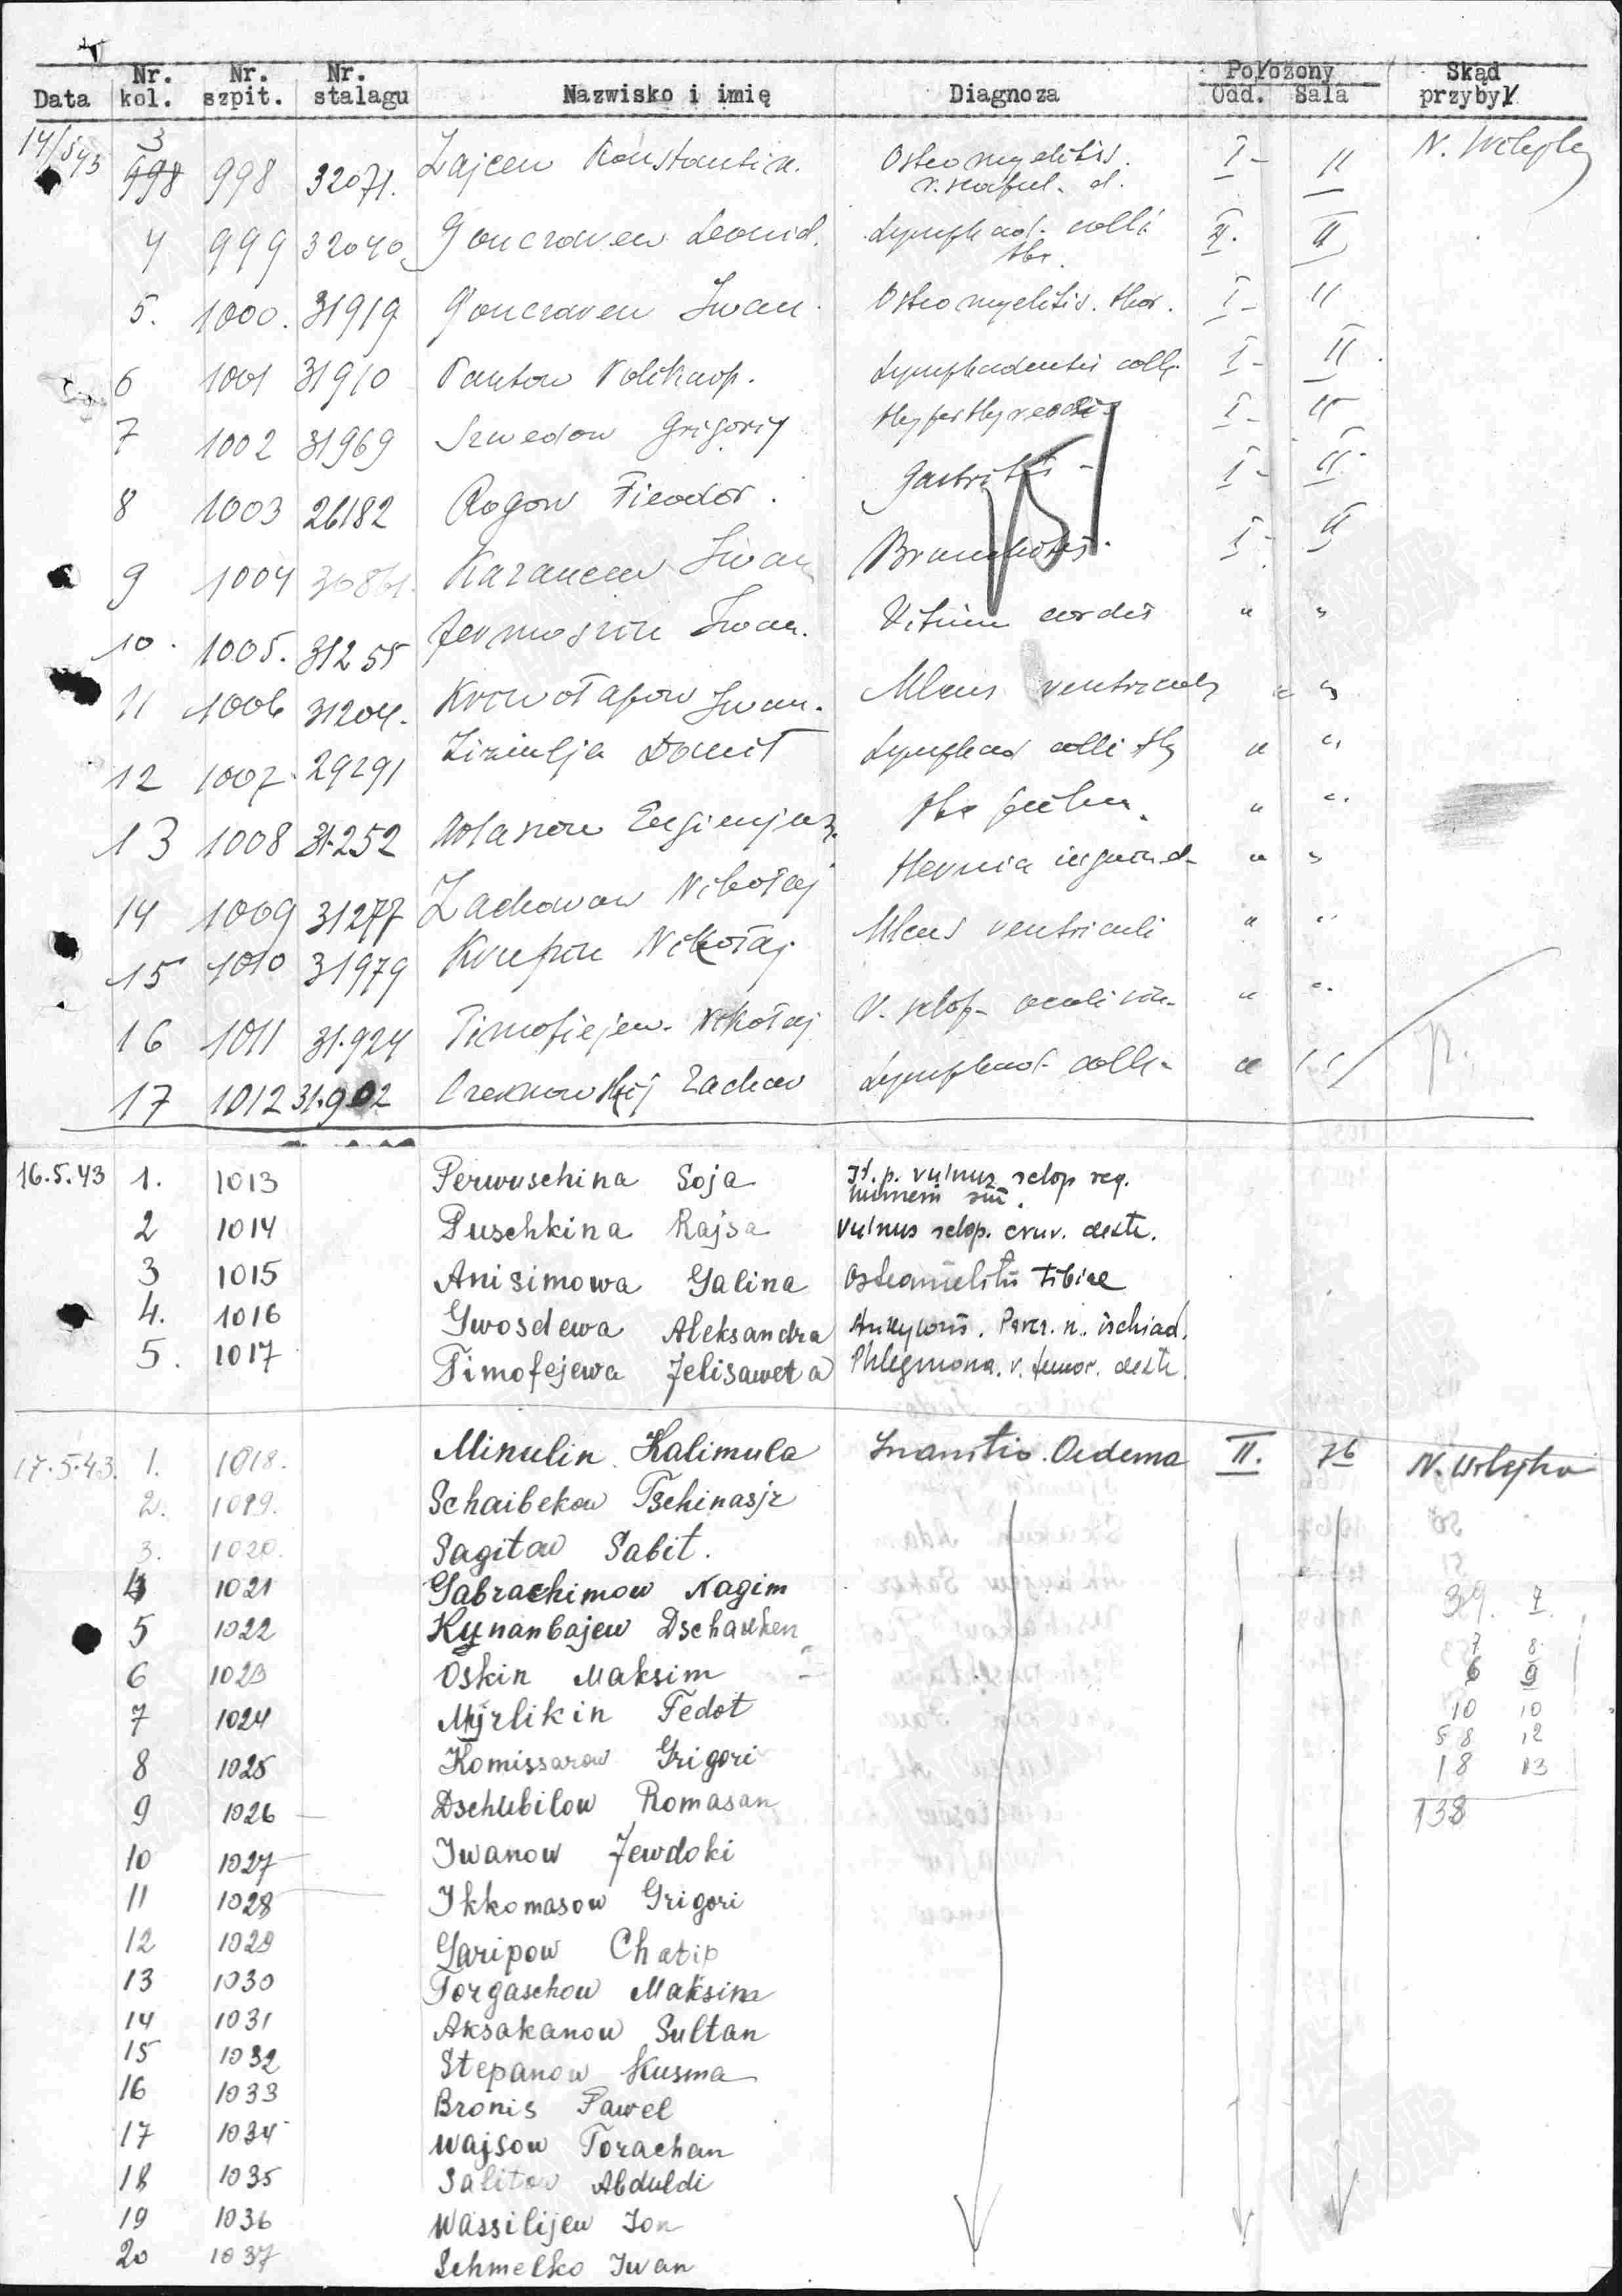 Data Nr. kol. Nr. szpit. Nr. stalagu Nazwisko i imię Diagnoza Położony Odd. Sala Skąd przybył
14/5 43 3 998 998 32071. Zajcew Konstantin. Osteomyelitis. I - II N. Wilejka
r. scapul. d.
4 999 32040 Gonczarew Leonid. Lymphad. colli II. II
tbc.
5. 1000. 31919 Gonczarew Iwan. Osteomyelitis. thor. I - II
6 1001 31910 Pantow Polikarp. Lymphadenitis colli. I - II.
7 1002 31969 Szwedow Grigorij Hyperthyreosis I - II
8 1003 26182 Rogow Fieodor. Gastritis - I - II
9 1004 Kazancew Iwan Bronchitis. I - II
10. 1005. 31255 Jermoszin Iwan. Vitium cordis " "
11 1006 31204. Kriwołapow Iwan. Ulcus ventriculi " "
12 1007. 29291 Lymphad colli tbc " "
13 1008 31.252 Tbc pulm. " "
14 1009 31277 Zacharow Nikołaj Hernia inguin. d. " "
15 1010 31979 Krupin Nikołaj Ulcus ventriculi " "
16 1011 31.924 Timofiejew. Nikołaj V. sklop. oculi sin. " "
17 1012 31.902 Zachar Lymphad. colli. " "
16.5.43 1. 1013 Perwuschina Soja St. p. vulnus sclop reg.
humeri sin.
2 1014 Puschkina Rajsa Vulnus sclop. crur. dextr.
3 1015 Anisimowa Galina Osteomielitis tibiae
4. 1016 Gwosdewa Aleksandra Ankylosis. Parez. n. ischiad.
5. 1017 Timofejewa Jelisaweta Phlegmona. v. femor. dextr.
17.5.43. 1. 1018. Minulin Kalimula Inanitio. Oedema II. 7b N. Wilejka
2. 1019. Schaibekow Tschinasjr
3. 1020. Sagitow Sabit.
4 1021 Gabrachimow Nagim 39. 7.
5 1022 Kynanbajew Dschauken 7 8
6 1023 Oskin Maksim 6 9
7 1024 Myrlikin Fedot 10 10
8 1025 Komissarow Grigori 58 12
18 13
9 1026 Dschubilow Romasan 138
10 1027 Iwanow Jewdoki
11 1028 Ikkomasow Grigori
12 1029 Garipow Chatip
13 1030 Torgaschow Maksim
14 1031 Aksakanow Sultan
15 1032 Stepanow Kusma
16 1033 Bronis Pawel
17 1034 Wajsow Torachan
18 1035 Salitow Abduldi
19 1036 Wassilijew Ion
20 1037 Schmelko Iwan